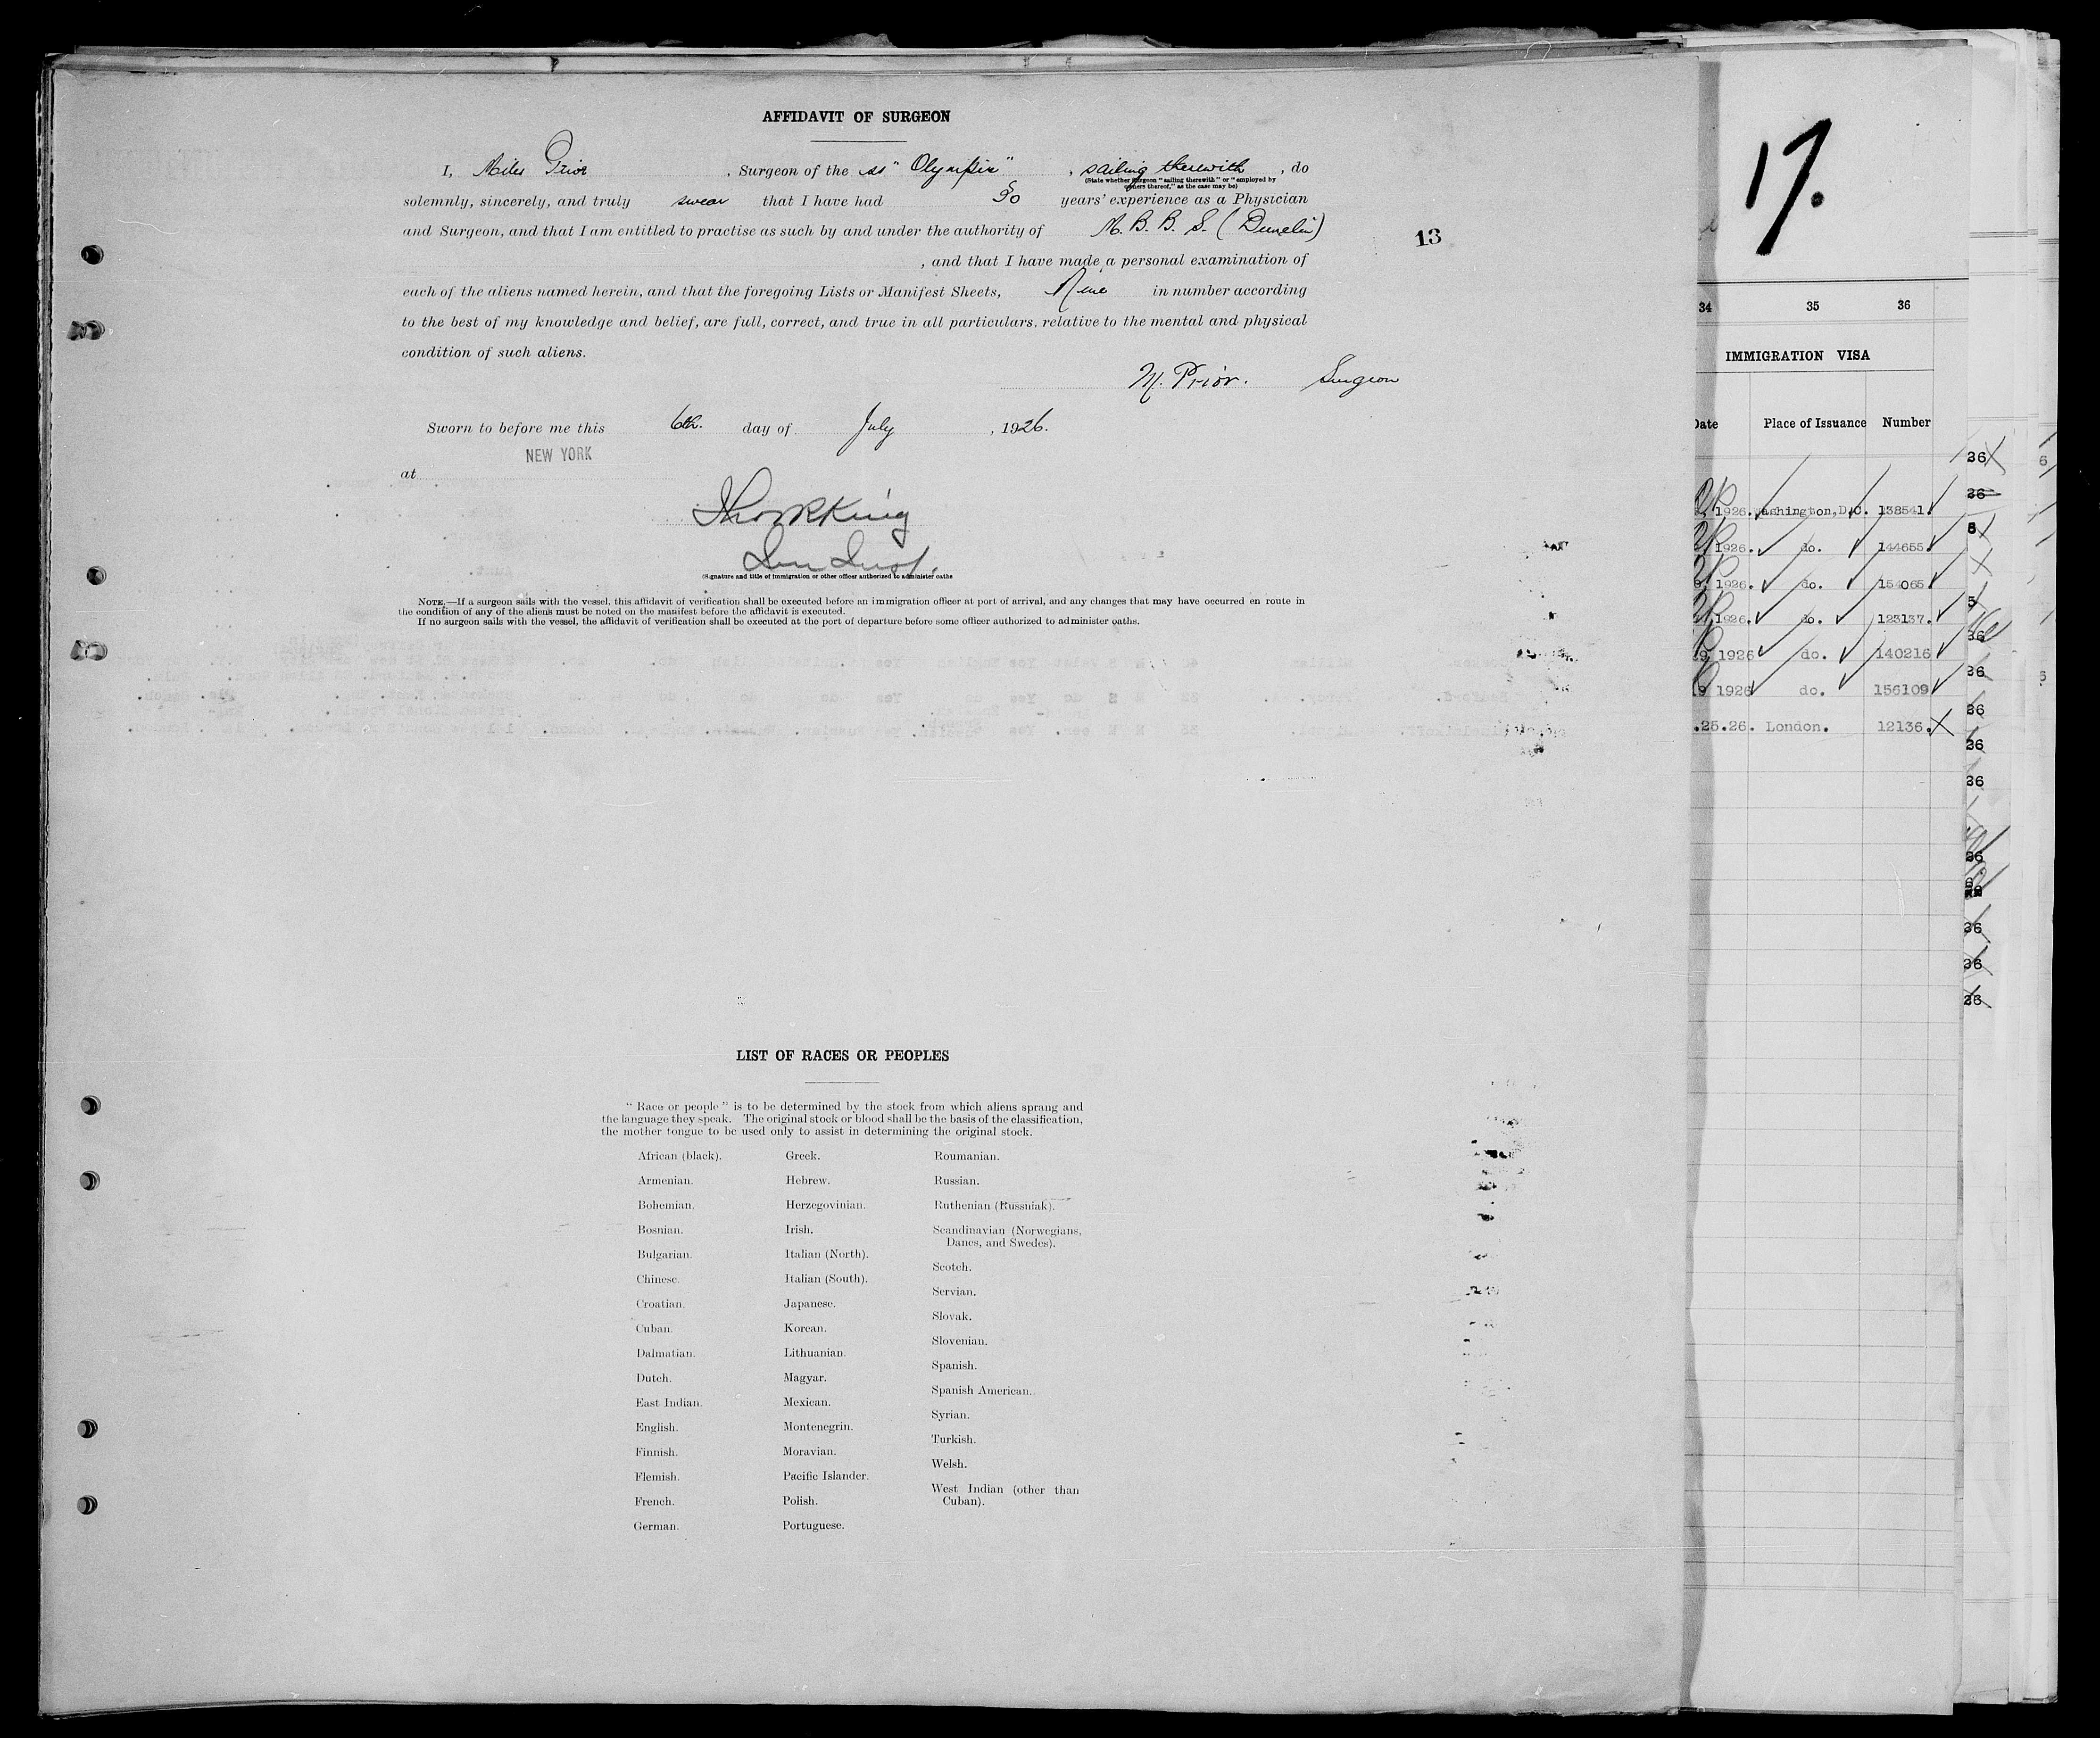 AFFIDAVIT OF SURGEON
I, Miles Prior, Surgeon of the ss "Olympic", sailing therewith, do
(State whether Surgeon "sailing therewith" or "employed by
owners thereof," as the case may be)
solemnly, sincerely, and truly swear that I have had 30 years' experience as a Physician
and Surgeon, and that I am entitled to practise as such by and under the authority of M. B. B. S. (Dunelm)
13
, and that I have made a personal examination of
each of the aliens named herein, and that the foregoing Lists or Manifest Sheets, Nine in number according
to the best of my knowledge and belief, are full, correct, and true in all particulars, relative to the mental and physical
condition of such aliens.
M. Prior. Surgeon
Sworn to before me this 6th. day of July, 1926.
NEW YORK
at
(Signature and title of immigration or other officer authorized to administer oaths
NOTE.—If a surgeon sails with the vessel, this affidavit of verification shall be executed before an immigration officer at port of arrival, and any changes that may have occurred en route in
the condition of any of the aliens must be noted on the manifest before the affidavit is executed.
If no surgeon sails with the vessel, the affidavit of verification shall be executed at the port of departure before some officer authorized to administer oaths.
LIST OF RACES OR PEOPLES
"Race or people" is to be determined by the stock from which aliens sprang and
the language they speak. The original stock or blood shall be the basis of the classification,
the mother tongue to be used only to assist in determining the original stock.
African (black).
Armenian.
Bohemian.
Bosnian.
Bulgarian.
Chinese.
Croatian.
Cuban.
Dalmatian.
Dutch.
East Indian.
English.
Finnish.
Flemish.
French.
German.
Greek.
Hebrew.
Herzegovinian.
Irish.
Italian (North).
Italian (South).
Japanese.
Korean.
Lithuanian.
Magyar.
Mexican.
Montenegrin.
Moravian.
Pacific Islander.
Polish.
Portuguese.
Roumanian.
Russian.
Ruthenian (Russniak).
Scandinavian (Norwegians,
Danes, and Swedes).
Scotch.
Servian.
Slovak.
Slovenian.
Spanish.
Spanish American.
Syrian.
Turkish.
Welsh.
West Indian (other than
Cuban).
17.
34 35 36
IMMIGRATION VISA
Date Place of Issuance Number
1926. ashington,D.C. 138541.
1926. do. 144655.
1926. do. 154065
1926. do. 123137.
1926 do. 140216
1926 do. 156109
.25.26. London. 12136.
36
36
36
36
36
36
36
36
36
36
36